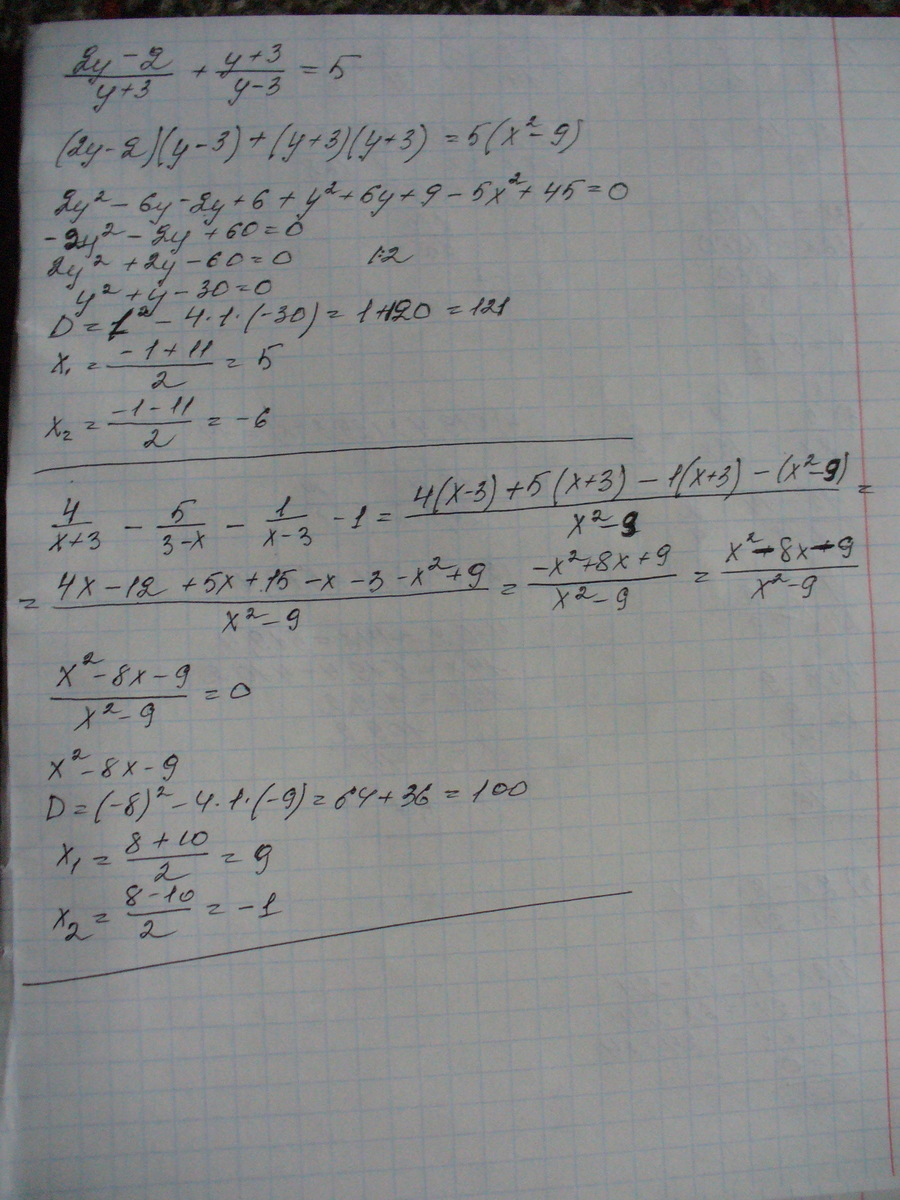 (2y-2)/(y+3) + (y+3)/(y-3) = 5
(2y-2)(y-3)+(y+3)(y+3) = 5(x²-9)
2y²-6y-2y+6+y²+6y+9-5x²+45=0
-2y²-2y+60=0
2y²+2y-60=0 |:2
y²+y-30=0
D=1²-4·1·(-30)=1+120=121
x₁=(-1+11)/2=5
x₂=(-1-11)/2=-6
4/(x+3) - 5/(3-x) - 1/(x-3) -1 = (4(x-3)+5(x+3)-1(x+3)-(x²-9))/(x²-9) =
= (4x-12+5x+15-x-3-x²+9)/(x²-9) = (-x²+8x+9)/(x²-9) = (x²-8x-9)/(x²-9)
(x²-8x-9)/(x²-9) = 0
x²-8x-9
D=(-8)²-4·1·(-9)=64+36=100
x₁=(8+10)/2=9
x₂=(8-10)/2=-1